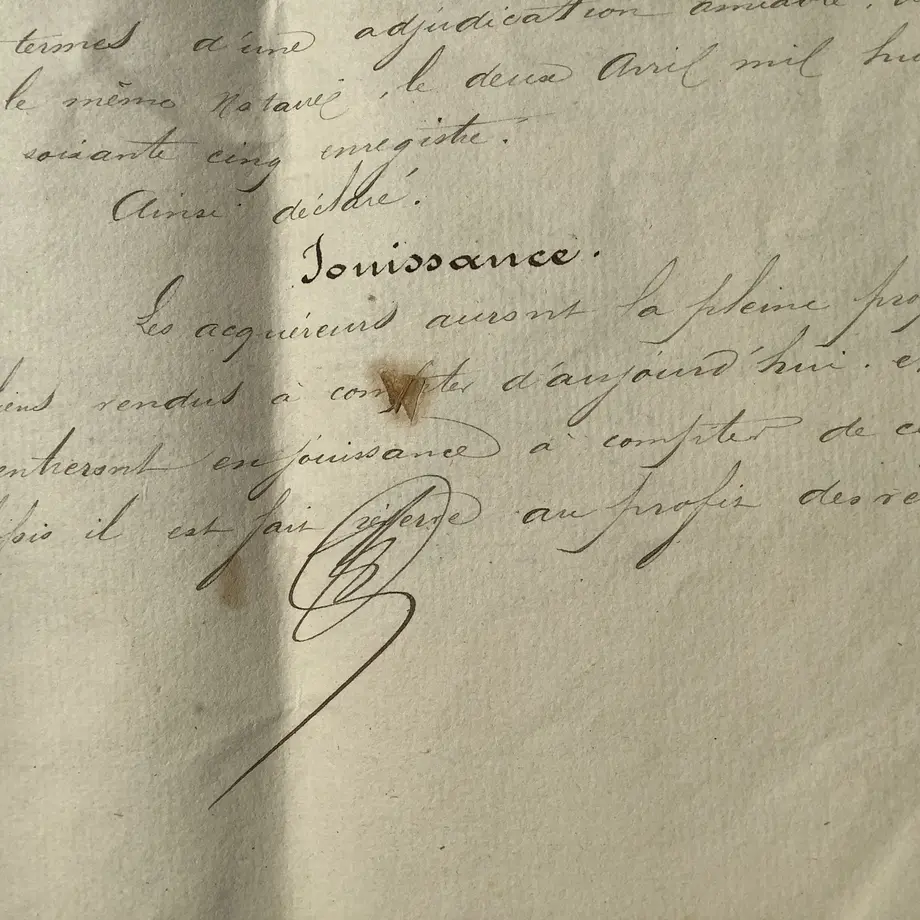 termes d'une adjudication amiable
le même Notaire, le deux Avril mil hui
soixante cinq enregistré.
Ainsi déclaré.
Jouissance.
Les acquéreurs auront la pleine pro
iens rendus à compter d'aujourd'hui. e
entreront en jouissance à compter de ce
fois il est fait réserve au profit des ve